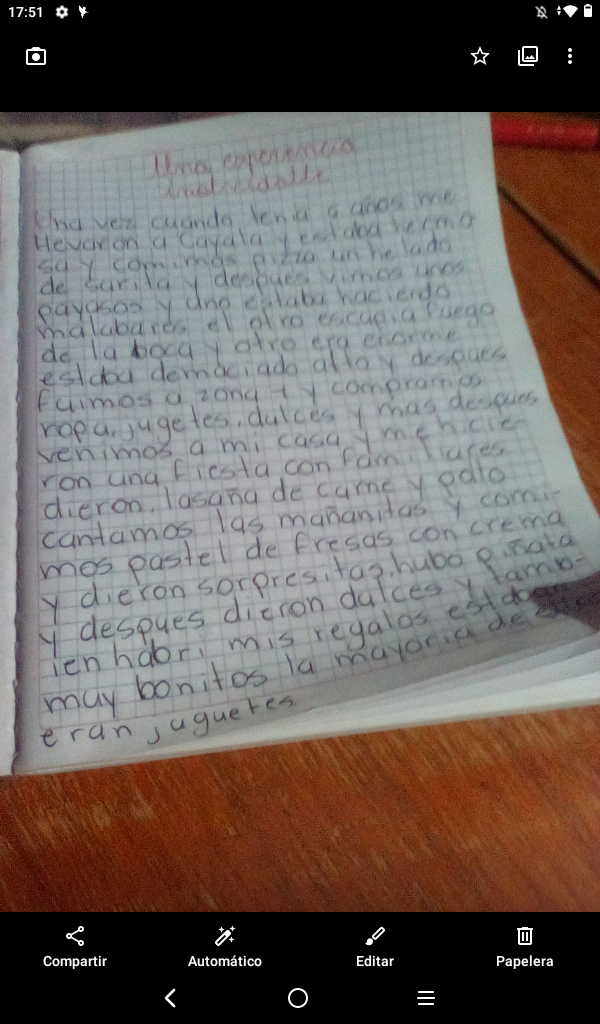 17:51
Una experiencia
inolvidable
Una vez cuando tenia 9 años me
llevaron a Cayala y estaba hermo
sa y comimos pizza un helado
de sarita y despues vimos unos
payasos y uno estaba haciendo
malabares el otro escupia fuego
de la boca y otro era enorme
estaba demaciado alto y despues
fuimos a zona 1 y compramos
ropa, jugetes, dulces y mas despues
venimos a mi casa y me hicie-
ron una fiesta con familiares
dieron. lasaña de carne y polo
cantamos las mañanitas y comi-
mos pastel de fresas con crema
y dieron sorpresitas. hubo piñata
y despues dieron dulces y tamb-
ien habri mis regalos estaban
muy bonitos la mayoria de
eran juguetes
Compartir
Automático
Editar
Papelera